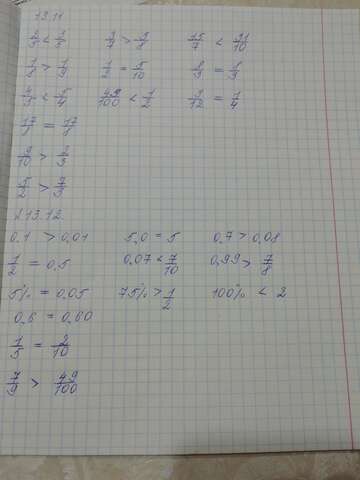 13.11
1/3 < 1/2 3/7 > 3/8 15/7 < 31/10
1/8 > 1/9 1/2 = 5/10 8/9 = 8/9
4/5 < 5/4 49/100 < 1/2 3/12 = 1/4
17/8 = 17/8
9/10 > 2/3
5/2 > 7/3
13.12
0,1 > 0,01 5,0 = 5 0,7 > 0,08
1/2 = 0,5 0,07 < 7/10 0,99 > 7/8
5% = 0,05 75% > 1/2 100% < 2
0,6 = 0,60
1/5 = 2/10
7/9 > 49/100